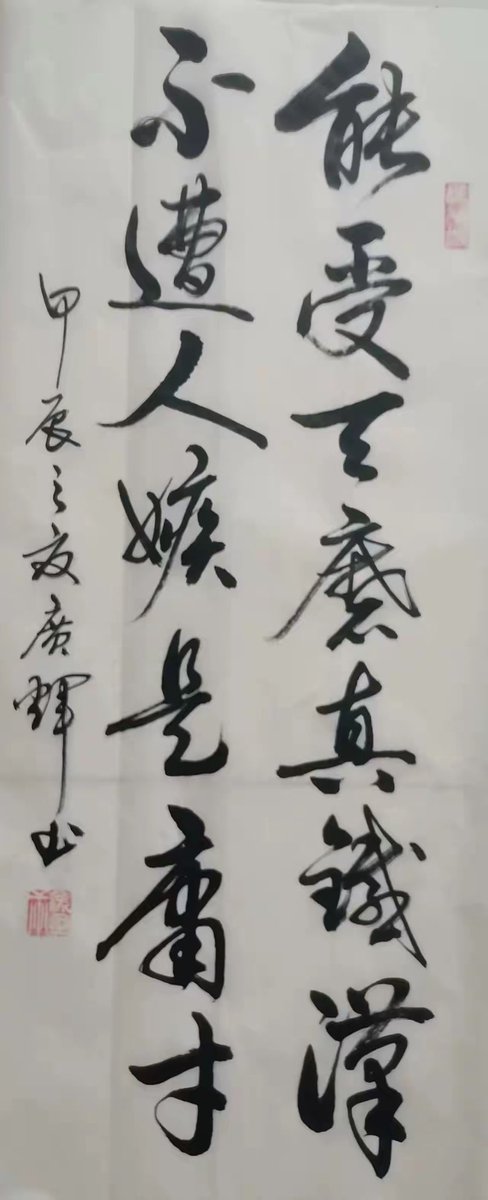 能受天磨真鐵漢
不遭人嫉是庸才
甲辰之夏廣輝书